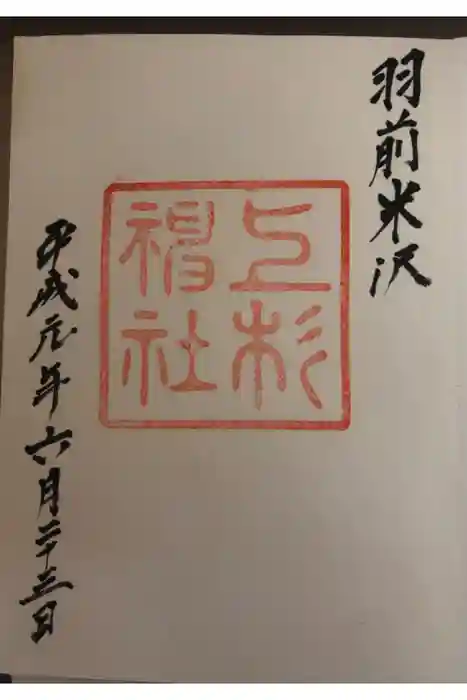 羽前米沢
上杉
神社
平成元年六月二十三日